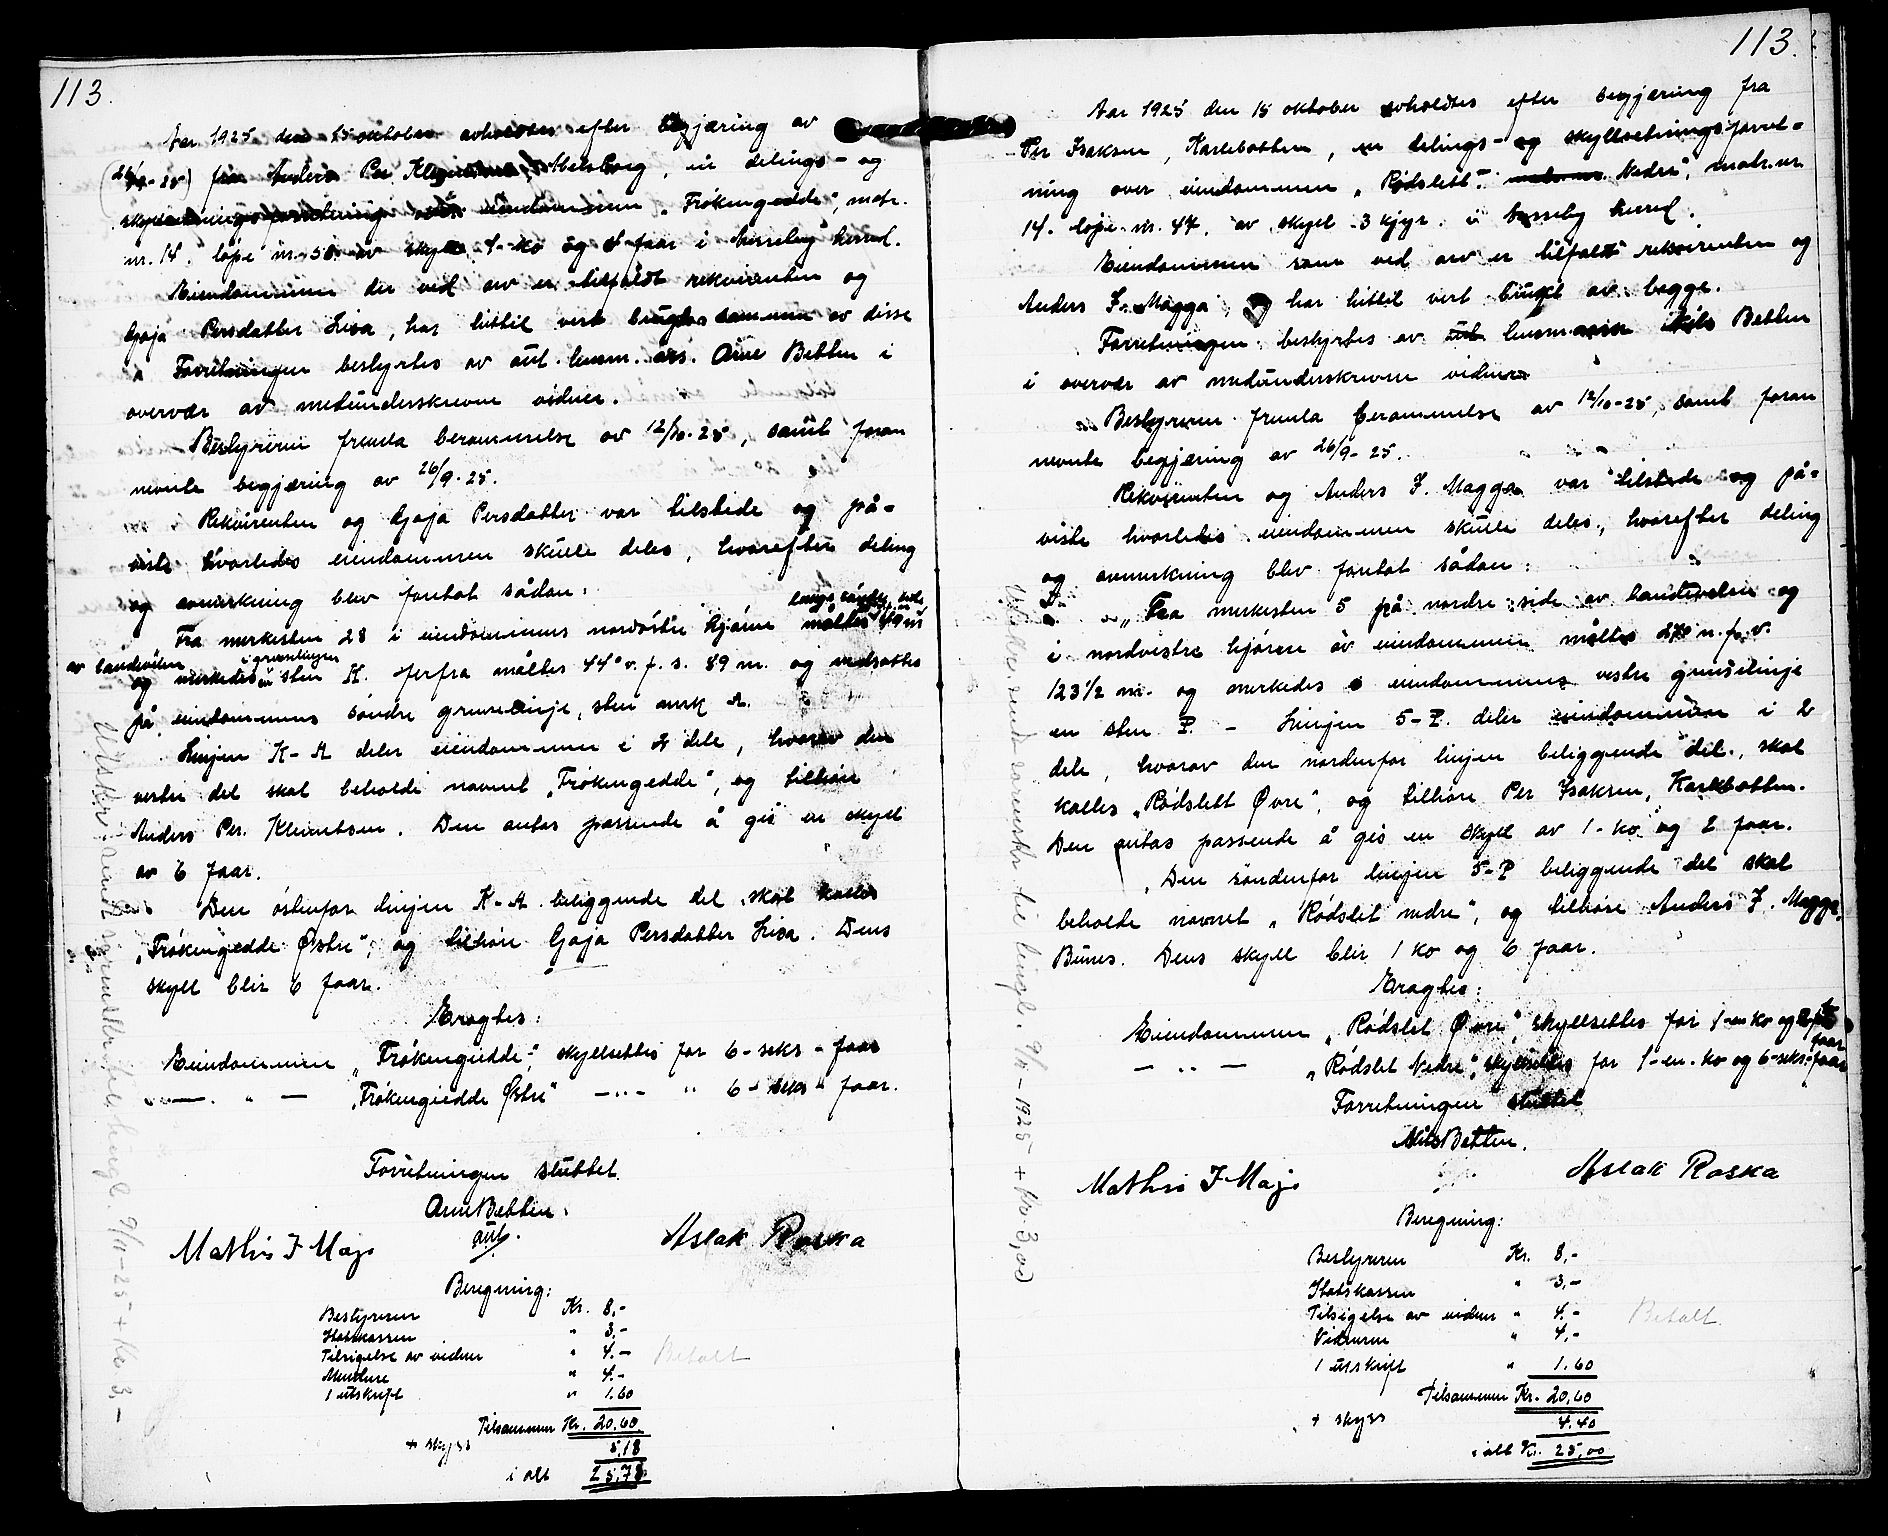 113.
Aar 1925 den 15 oktober avholdtes efter begjæring av
(26/9-25) fra Anders Per Klemetsen, Abelsborg, en delings- og
skyldsetningsforretning over eiendommen „Frökengedde", matr.
nr. 14. löpe nr. 50 av skyld 1-ko og 4-faar i Nesseby herred.
Eiendommen der ved arv er tilfaldt rekvirenten og
Gaja Persdatter Lisa, har hittil vert brugt sammen av disse
Forretningen bestyrtes av aut. lensm. ass. Arne Betten i
overvær av medunderskrevne vidner.
Bestyreren fremla berammelse av 12/10-25, samt foran
nevnte begjæring av 26/9-25.
Rekvirenten og Gaja Persdatter var tilstede og på-
viste hvorledes eiendommen skulle deles, hvorefter deling
og avmerkning blev foretat sådan:
Fra merkesten 28 i eiendommens nordöstre hjörne måltes langs söndre side
av landeveien og merkedes i grenselinjen en sten K. herfra måltes 44° v. f. s. 89 m. og nedsattes
på eiendommens söndre grenselinje, sten merk A.
Linjen K-A deler eiendommen i 2 dele, hvorav den
vestre del skal beholde navnet „Frökengedde", og tilhöre
Anders Per. Klemetsen. Den antas passende å gis en skyld
av 6 faar.
Den östenfor linjen K-A beliggende del skal kalles
„Frökengedde Östre", og tilhöre Gaja Persdatter Lisa. Dens
skyld blir 6 faar.
Eragtes:
Eiendommen „Frökengedde", skyldsettes for 6-seks-faar
— „ — „Frökengiedde Østre" —„— " 6-seks-faar.
Forretningen sluttet.
Arne Betten.
aut.
Mathis I Majo Aslak Roska
Beregning:
Bestyreren Kr. 8,-
Statskassen " 3,-
Tilsigelse av vidner " 4.-
Vidnene " 4.-
1 utskrift " 1.60
Betalt
Tilsammen Kr. 20.60
+ skyss 5,18
i alt 25,78
Utskr. samt grunnlbr. til tingl. 9/11-25 + Kr. 3,-
113.
Aar 1925 den 15 oktober avholdtes efter begjæring fra
Per Isaksen, Karlebotten, en delings- og skyldsetningsforret-
ning over eiendommen „Rödslett" Nedre", matr. nr
14. löpe nr. 47. av skyld 3 kjyr. i Nesseby herred.
Eiendommen som ved arv er tilfaldt rekvirenten og
Anders I. Magga, har hittil vert brugt av begge.
Forretningen bestyrtes av lensmann Nils Betten
i overvær av medunderskrevne vidner
Bestyreren fremla berammelse av 12/10-25, samt foran
nevnte begjæring av 26/9-25.
Rekvirenten og Anders I. Magga var tilstede og på-
viste hvorledes eiendommen skulle deles, hvorefter deling
og avmerkning blev foretat sådan:
Fra merkesten 5 på nordre side av landeveien og
i nordvestre hjörne av eiendommen måltes n. f. v.
123½ m. og merkedes eiendommens vestre grenselinje
en sten P. - Linjen 5-P. deler eiendommen i 2
dele, hvorav den nordenfor linjen beliggende del, skal
kalles „Rödslett Øvre", og tilhöre Per Isaksen, Karlebotten.
Den antas passende å gis en skyld av 1-ko og 2 faar.
Den söndenfor linjen 5-P beliggende del skal
beholde navnet „Rödslet nedre", og tilhöre Anders I. Magga,
Bunes. Dens skyld blir 1 ko og 6 faar.
Eragtes:
Eiendommen „Rödslet Øvre", skyldsettes for 1-en ko og 2-to faar
— „ — „Rödslet Nedre", skyldsettes for 1-en-ko og 6-seks-faar
Forretningen sluttet
Nils Betten.
Mathis I Majo Aslak Roska
Beregning:
Bestyreren Kr. 8,-
Statskassen " 3,-
Tilsigelse av vidner " 4,-
Vidnene " 4,-
1 utskrift " 1.60
Betalt.
Tilsammen Kr. 20,60
+ skyss 4.40
i alt Kr. 25,00
til tingl. 9/11-1925 + Kr. 3,00